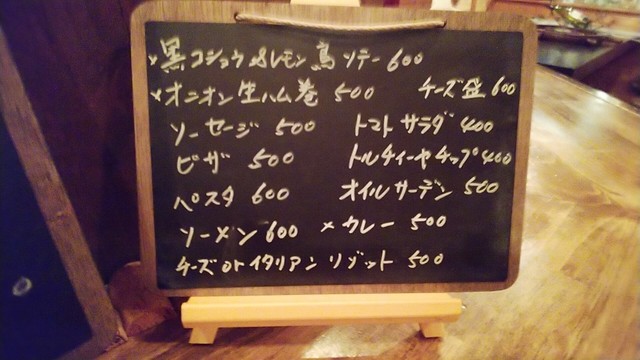 ×黒コショウ&レモン鳥ソテー 600
×オニオン生ハム巻 500 チーズ盛 600
ソーセージ 500 トマトサラダ 400
ピザ 500 トルティーヤチップ 400
パスタ 600 オイルサーデン 500
ソーメン 600 ×カレー 500
チーズorイタリアンリゾット 500